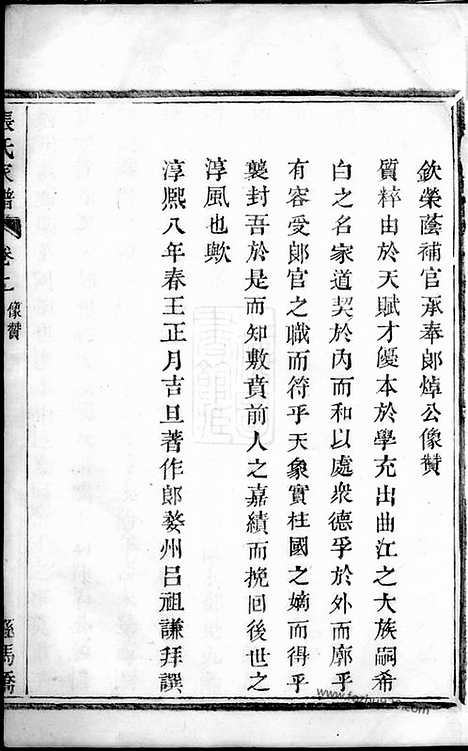 欽榮蔭補官承奉郎焯公像贊
質粹由於天賦才優本於學充出曲江之大族嗣希
白之名家道契於內而和以處衆德孚於外而廓乎
有容受郎官之職而符乎天象實柱國之嫡而得乎
襲封吾於是而知敷賁前人之嘉績而挽回後世之
淳風也歟
淳熙八年春王正月吉旦著作郎婺州呂祖謙拜譔
張氏家譜
卷之
像贊
馬橋